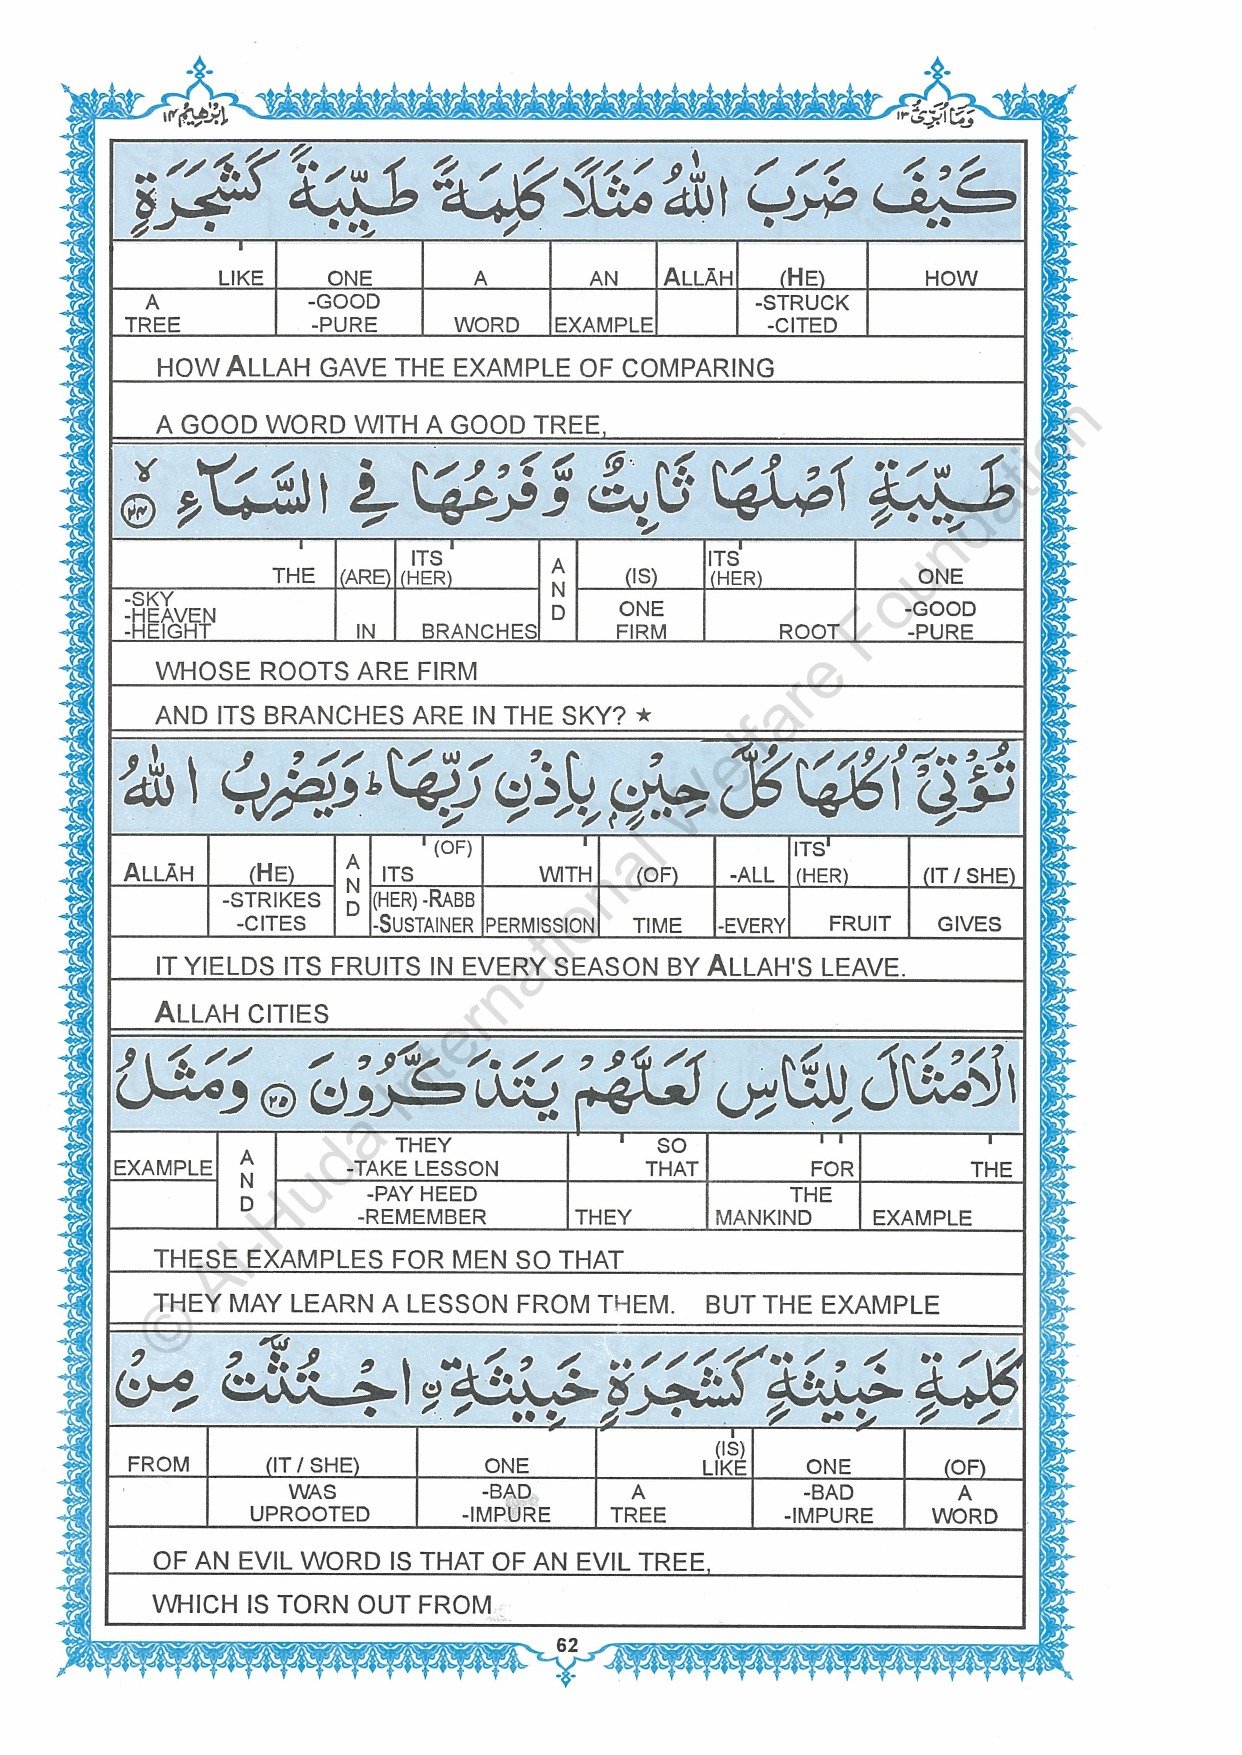 اِبْرٰهِيْمُ ١٤
وَمَا اُبَرِّئُ ١٣
كَيْفَ ضَرَبَ اللّٰهُ مَثَلًا كَلِمَةً طَيِّبَةً كَشَجَرَةٍ
LIKE ONE A AN ALLĀH (HE) HOW
A TREE -GOOD -PURE WORD EXAMPLE -STRUCK -CITED
HOW ALLAH GAVE THE EXAMPLE OF COMPARING
A GOOD WORD WITH A GOOD TREE,
طَيِّبَةٍ اَصْلُهَا ثَابِتٌ وَّفَرْعُهَا فِي السَّمَآءِ ۙ ٢٤
THE (ARE) ITS (HER) AND (IS) ITS (HER) ONE
-SKY -HEAVEN -HEIGHT IN BRANCHES ONE FIRM ROOT -GOOD -PURE
WHOSE ROOTS ARE FIRM
AND ITS BRANCHES ARE IN THE SKY? ★
تُؤْتِيْٓ اُكُلَهَا كُلَّ حِيْنٍۢ بِاِذْنِ رَبِّهَا ؕ وَيَضْرِبُ اللّٰهُ
ALLĀH (HE) AND ITS (OF) WITH (OF) -ALL ITS (HER) (IT / SHE)
-STRIKES -CITES (HER) -RABB -SUSTAINER PERMISSION TIME -EVERY FRUIT GIVES
IT YIELDS ITS FRUITS IN EVERY SEASON BY ALLAH'S LEAVE.
ALLAH CITIES
الْاَمْثَالَ لِلنَّاسِ لَعَلَّهُمْ يَتَذَكَّرُوْنَ ٢٥ وَمَثَلُ
EXAMPLE AND THEY -TAKE LESSON SO THAT FOR THE
-PAY HEED -REMEMBER THEY THE MANKIND EXAMPLE
THESE EXAMPLES FOR MEN SO THAT
THEY MAY LEARN A LESSON FROM THEM. BUT THE EXAMPLE
كَلِمَةٍ خَبِيْثَةٍ كَشَجَرَةٍ خَبِيْثَةِ ِۨ اجْتُثَّتْ مِنْ
FROM (IT / SHE) ONE (IS) LIKE ONE (OF)
WAS UPROOTED -BAD -IMPURE A TREE -BAD -IMPURE A WORD
OF AN EVIL WORD IS THAT OF AN EVIL TREE,
WHICH IS TORN OUT FROM
62
© Al-Huda International Welfare Foundation